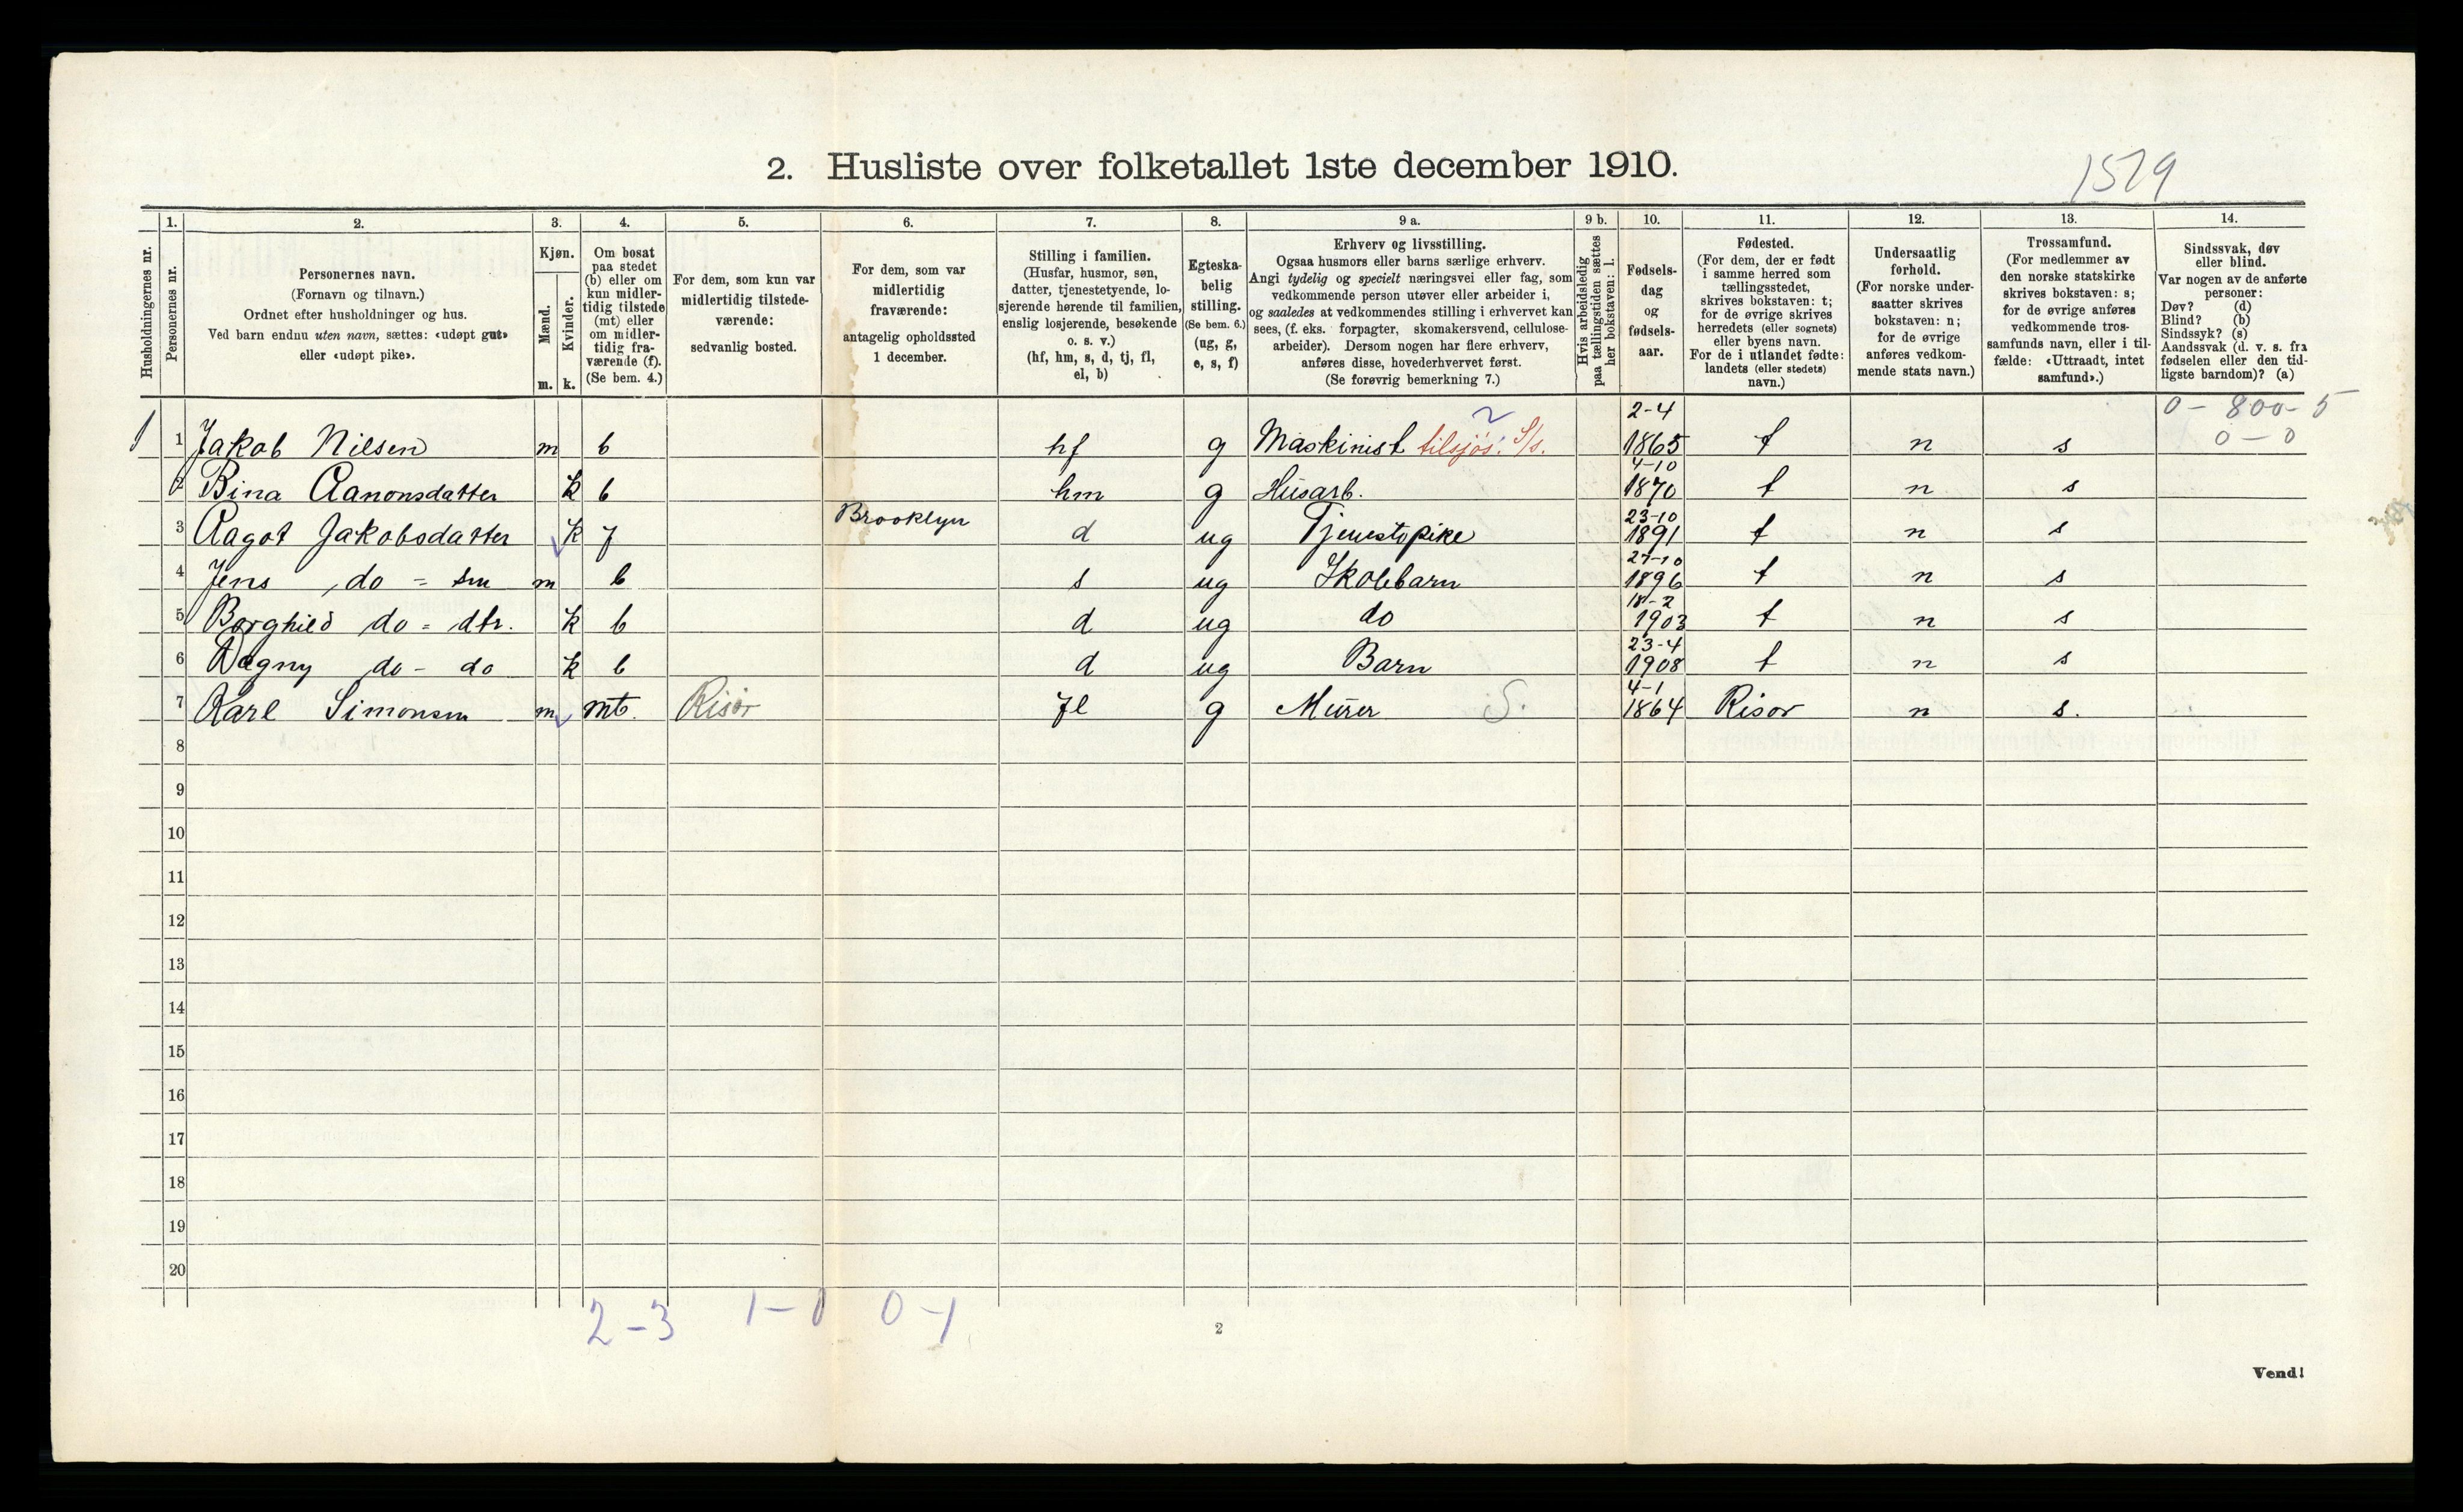 2. Husliste over folketallet 1ste december 1910.
1529
1. 2. 3. 4. 5. 6. 7. 8. 9 a. 9 b. 10. 11. 12. 13. 14.
Husholdningernes nr.
Personernes nr.
Personernes navn.
(Fornavn og tilnavn.)
Ordnet efter husholdninger og hus.
Ved barn endnu uten navn, sættes: «udøpt gut»
eller «udøpt pike».
Kjøn.
Mænd.
Kvinder.
m. k.
Om bosat
paa stedet
(b) eller om
kun midler-
tidig tilstede
(mt) eller
om midler-
tidig fra-
værende (f).
(Se bem. 4.)
For dem, som kun var
midlertidig tilstede-
værende:
sedvanlig bosted.
For dem, som var
midlertidig
fraværende:
antagelig opholdssted
1 december.
Stilling i familien.
(Husfar, husmor, søn,
datter, tjenestetyende, lo-
sjerende hørende til familien,
enslig losjerende, besøkende
o. s. v.)
(hf, hm, s, d, tj, fl,
el, b)
Egteska-
belig
stilling.
(Se bem. 6.)
(ug, g,
e, s, f)
Erhverv og livsstilling.
Ogsaa husmors eller barns særlige erhverv.
Angi tydelig og specielt næringsvei eller fag, som
vedkommende person utøver eller arbeider i,
og saaledes at vedkommendes stilling i erhvervet kan
sees, (f. eks. forpagter, skomakersvend, cellulose-
arbeider). Dersom nogen har flere erhverv,
anføres disse, hovederhvervet først.
(Se forøvrig bemerkning 7.)
Hvis arbeidsledig
paa tællingstiden sættes
her bokstaven: l.
Fødsels-
dag
og
fødsels-
aar.
Fødested.
(For dem, der er født
i samme herred som
tællingsstedet,
skrives bokstaven: t;
for de øvrige skrives
herredets (eller sognets)
eller byens navn.
For de i utlandet fødte:
landets (eller stedets)
navn.)
Undersaatlig
forhold.
(For norske under-
saatter skrives
bokstaven: n;
for de øvrige
anføres vedkom-
mende stats navn.)
Trossamfund.
(For medlemmer av
den norske statskirke
skrives bokstaven: s;
for de øvrige anføres
vedkommende tros-
samfunds navn, eller i til-
fælde: «Uttraadt, intet
samfund».)
Sindssvak, døv
eller blind.
Var nogen av de anførte
personer:
Døv? (d)
Blind? (b)
Sindssyk? (s)
Aandssvak (d. v. s. fra
fødselen eller den tid-
ligste barndom)? (a)
0 - 800 - 5
0 - 0
1 1 Jakob Nilsen m b hf g Maskinist tilsjøs. S/s. 2-4 1865 t n s
2 Bina Aanonsdatter k b hm g Husarb. 4-10 1870 t n s
3 Aagot Jakobsdatter k f Brooklyn d ug Tjenestepike 23-10 1891 t n s
4 Jens do = sn m b s ug Skolebarn 27-10 1896 t n s
5 Borghild do = dtr. k b d ug do 18-2 1903 t n s
6 Dagny do - do k b d ug Barn 23-4 1908 t n s
7 Karl Simonsen m mt. Risør fl g Murer S. 4-1 1864 Risør n s.
8
9
10
11
12
13
14
15
16
17
18
19
20
2 - 3 1 - 0 0 - 1
2
Vend!